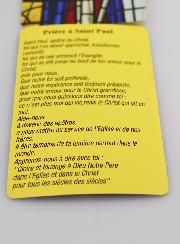 Prière à Saint Paul
Saint Paul, apôtre du Christ,
toi qui t'es laissé approcher, transformer,
convertir,
toi qui as osé annoncer l'Evangile,
toi qui as été jusqu'au bout de ton amour pour le
Christ,
prie pour nous.
Que notre foi soit profonde,
que notre espérance soit toujours présente,
que notre amour pour le Christ grandisse,
pour que nous puissions dire comme toi :
ce n'est plus moi qui vis, mais le Christ qui vit en
moi.
Aide-nous
à devenir des apôtres,
à nous mettre au service de l'Eglise et de nos
frères,
à être témoins de ta lumière partout dans le
monde.
Apprends-nous à dire avec toi :
"Gloire et louange à Dieu Notre Père
dans l'Eglise et dans le Christ
pour tous les siècles des siècles"